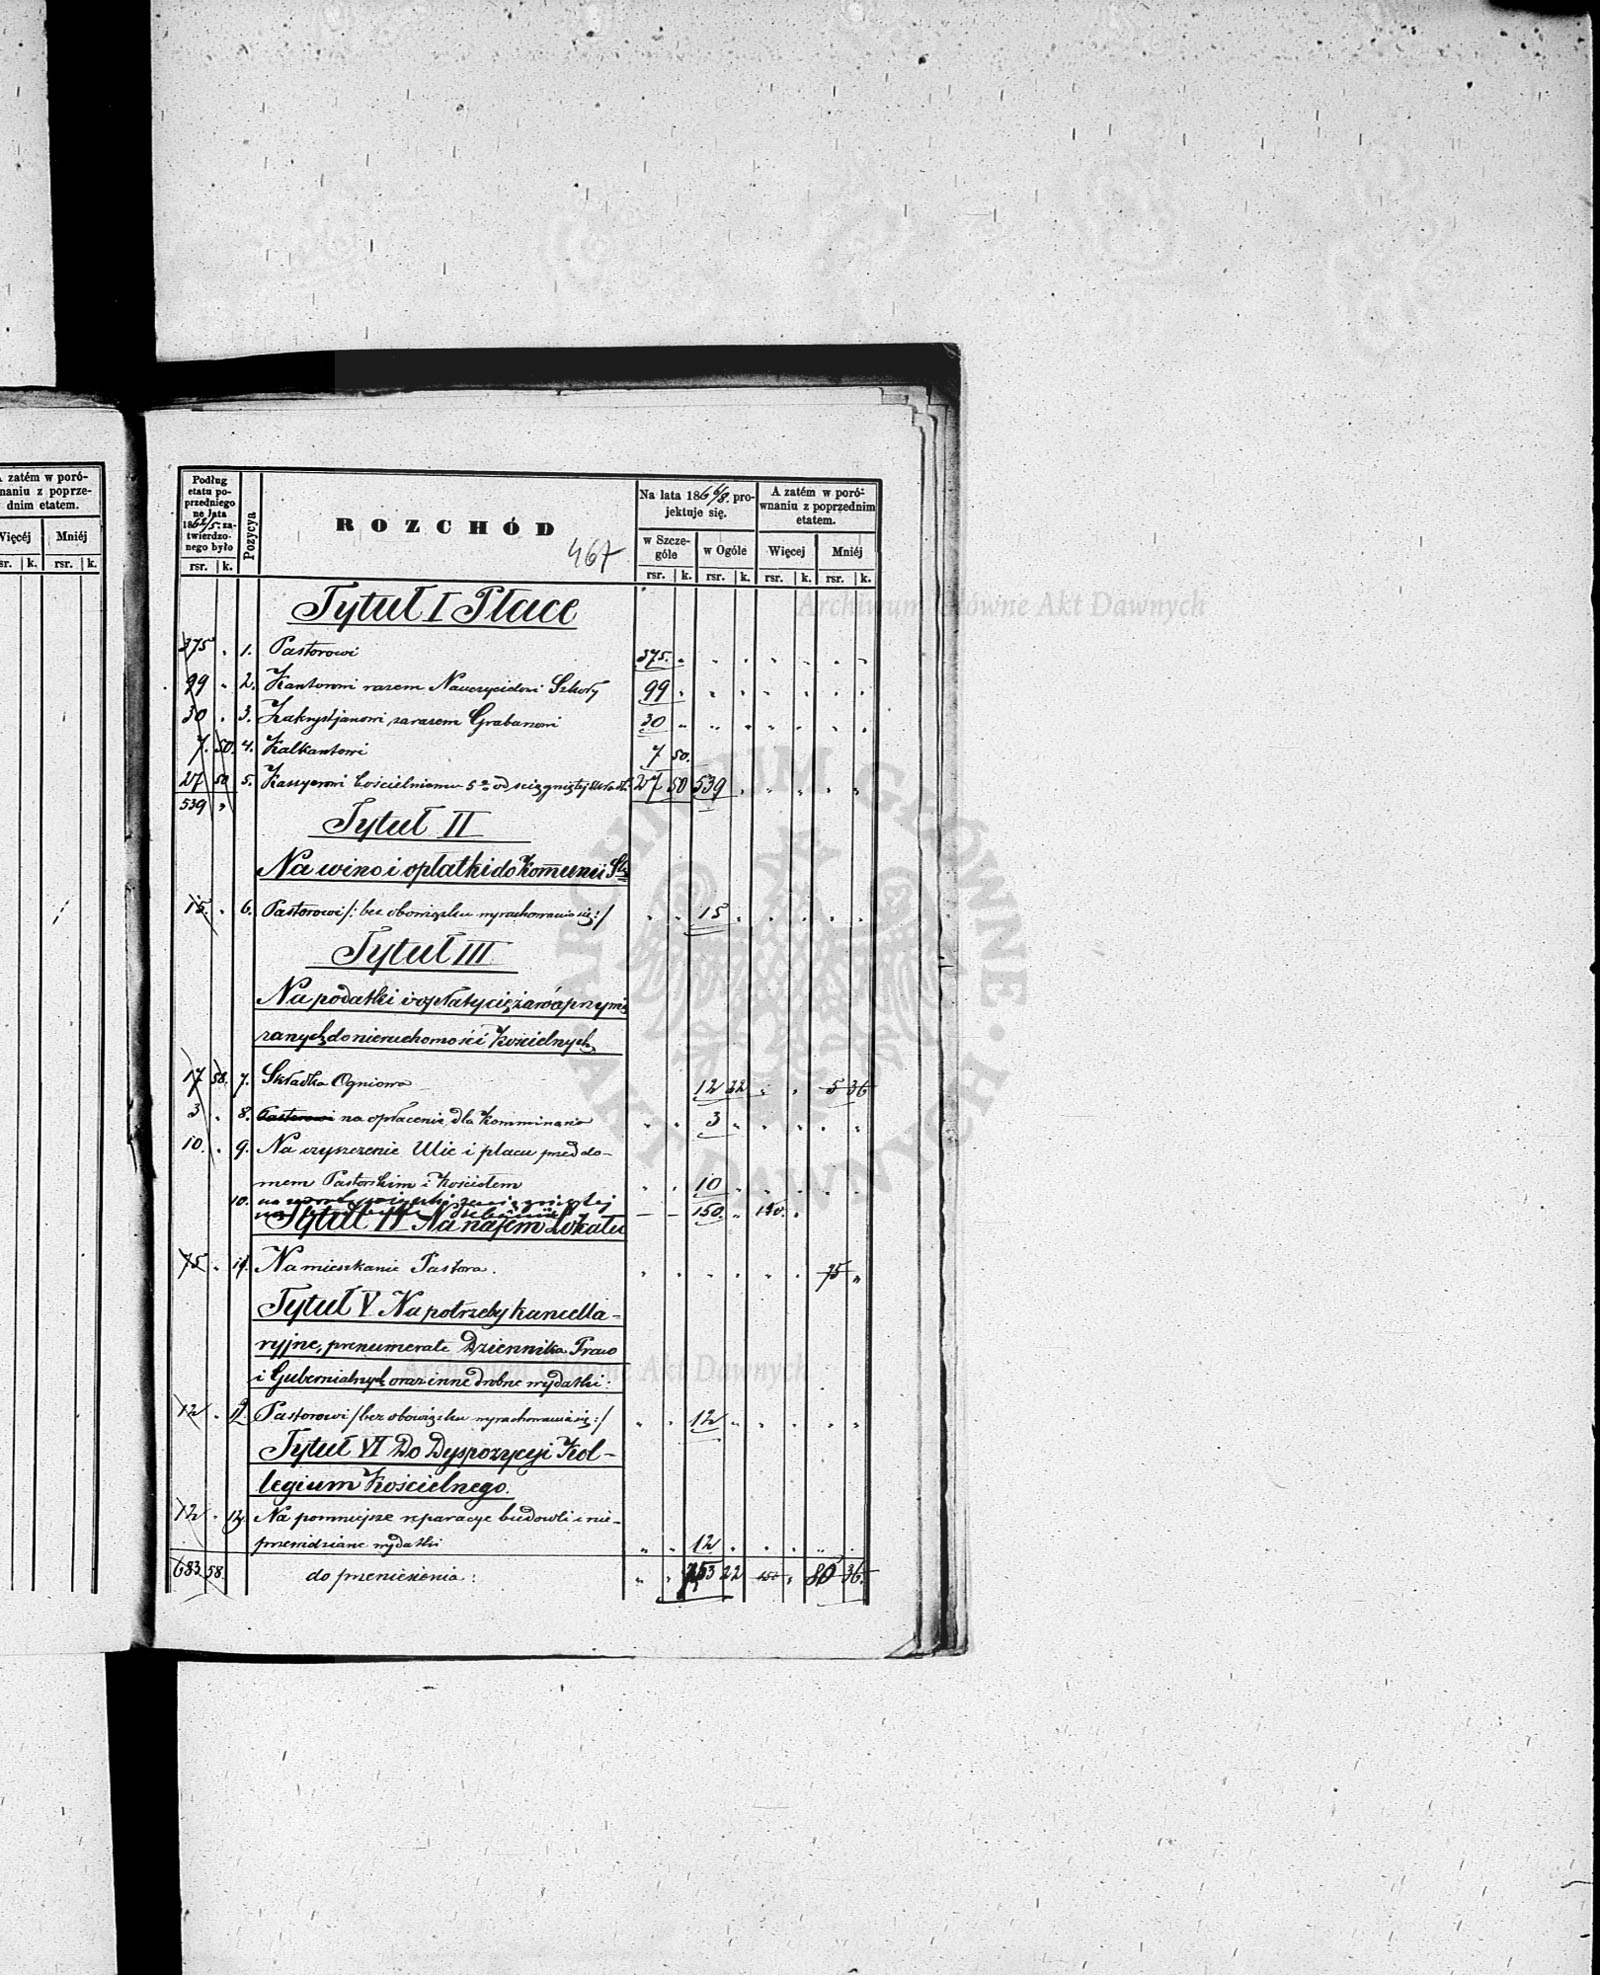 A zatém w poró-
naniu z poprze-
dnim etatem.
Więcéj | Mniéj
rsr. | k. | rsr. | k.
Podług
etatu po-
przedniego
na lata
1862/5. za-
twierdzo-
nego było
rsr. | k.
Pozycya
ROZCHÓD
467
Na lata 1866/8. pro-
jektuje się.
w Szcze-
góle | w Ogóle
rsr. | k. | rsr. | k.
A zatém w poró-
wnaniu z poprzednim
etatem.
Więcej | Mniéj
rsr. | k. | rsr. | k.
Tytuł I Płace
375 " 1. Pastorowi 375. "
99 " 2. Kantorowi razem Nauczycielowi Szkoły 99 "
30 " 3. Zakrystjanowi zarazem Grabarzowi 30 "
7. 50. 4. Kalkantowi 7 50.
27 50 5. Kassyerowi kościelnemu 5% od ściągniętej składki 27 50 539 "
539 "
Tytuł II
Na wino i opłatki do Kommunii Stej
15. " 6. Pastorowi /: bez obowiązku wyrachowania się :/ " " 15 "
Tytuł III
Na podatki i opłaty ciężarów przywią
zanych do nieruchomości Kościelnych
17 58. 7. Składka Ogniowa 12 22 " " 5 36
3 " 8. Pastorowi na opłacenie dla Kominiarza " " 3 "
10. " 9. Na czyszczenie Ulic i placu przed do-
mem Pastorskim i Kościołem " " 10 "
10. — — 150. " 150. "
Tytuł IV Na najem Lokalu
75 " 11. Na mieszkanie Pastora. " " " " " " 75 "
Tytuł V. Na potrzeby kancella-
ryjne, prenumeratę Dziennika Praw
i Gubernialnych oraz inne drobne wydatki:
12 " 12. Pastorowi /bez obowiązku wyrachowania się :/ " " 12 "
Tytuł VI Do Dyspozycyi Kol-
legium Kościelnego.
12 " 13. Na pomniejsze reparacye budowli i nie-
przewidziane wydatki " " 12 "
683 58. do przeniesienia: " " 753 22 150 " 80 36.
Archiwum Główne Akt Dawnych
Archiwum Główne Akt Dawnych
ARCHIWUM GŁÓWNE AKT DAWNYCH